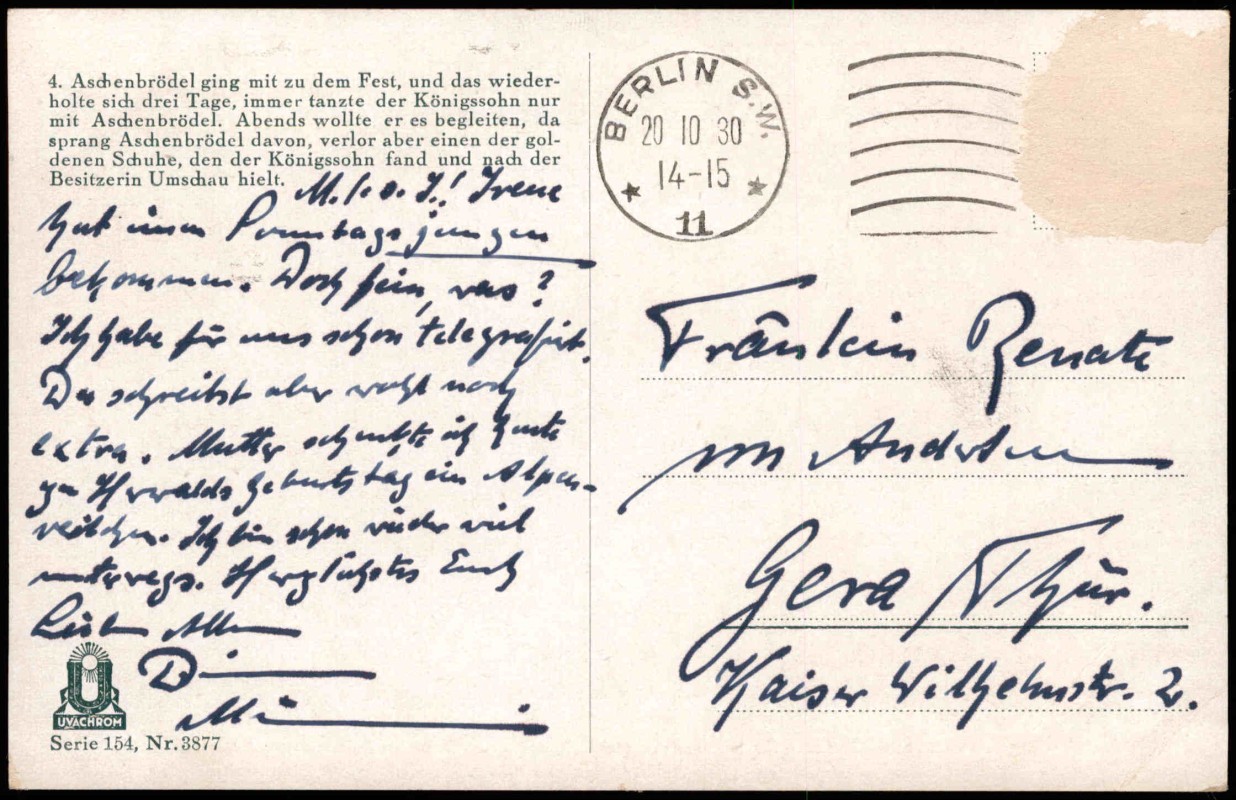 4. Aschenbrödel ging mit zu dem Fest, und das wieder-
holte sich drei Tage, immer tanzte der Königssohn nur
mit Aschenbrödel. Abends wollte er es begleiten, da
sprang Aschenbrödel davon, verlor aber einen der gol-
denen Schuhe, den der Königssohn fand und nach der
Besitzerin Umschau hielt.
M. l. s. I.! Irene
hat einen Sonntagsjungen
bekommen. Doch fein, was?
Ich habe für uns schon telegrafiert.
Du schreibst aber wohl noch
extra. Mutter schenkte ich heute
zu Herwalds Geburtstag ein Alpen-
veilchen. Ich bin schon wieder viel
unterwegs. Herzlichstes Euch
Lieben Allen
UVACHROM
Serie 154, Nr. 3877
BERLIN S.W.
20 10 30
14-15
11
Fräulein Renate
von Anderten
Gera Thür.
Kaiser Wilhelmstr. 2.